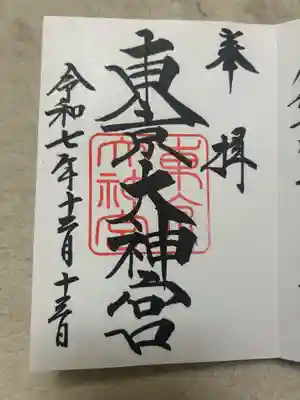 奉拝
東京大神宮
東京大神宮
令和七年十二月十三日